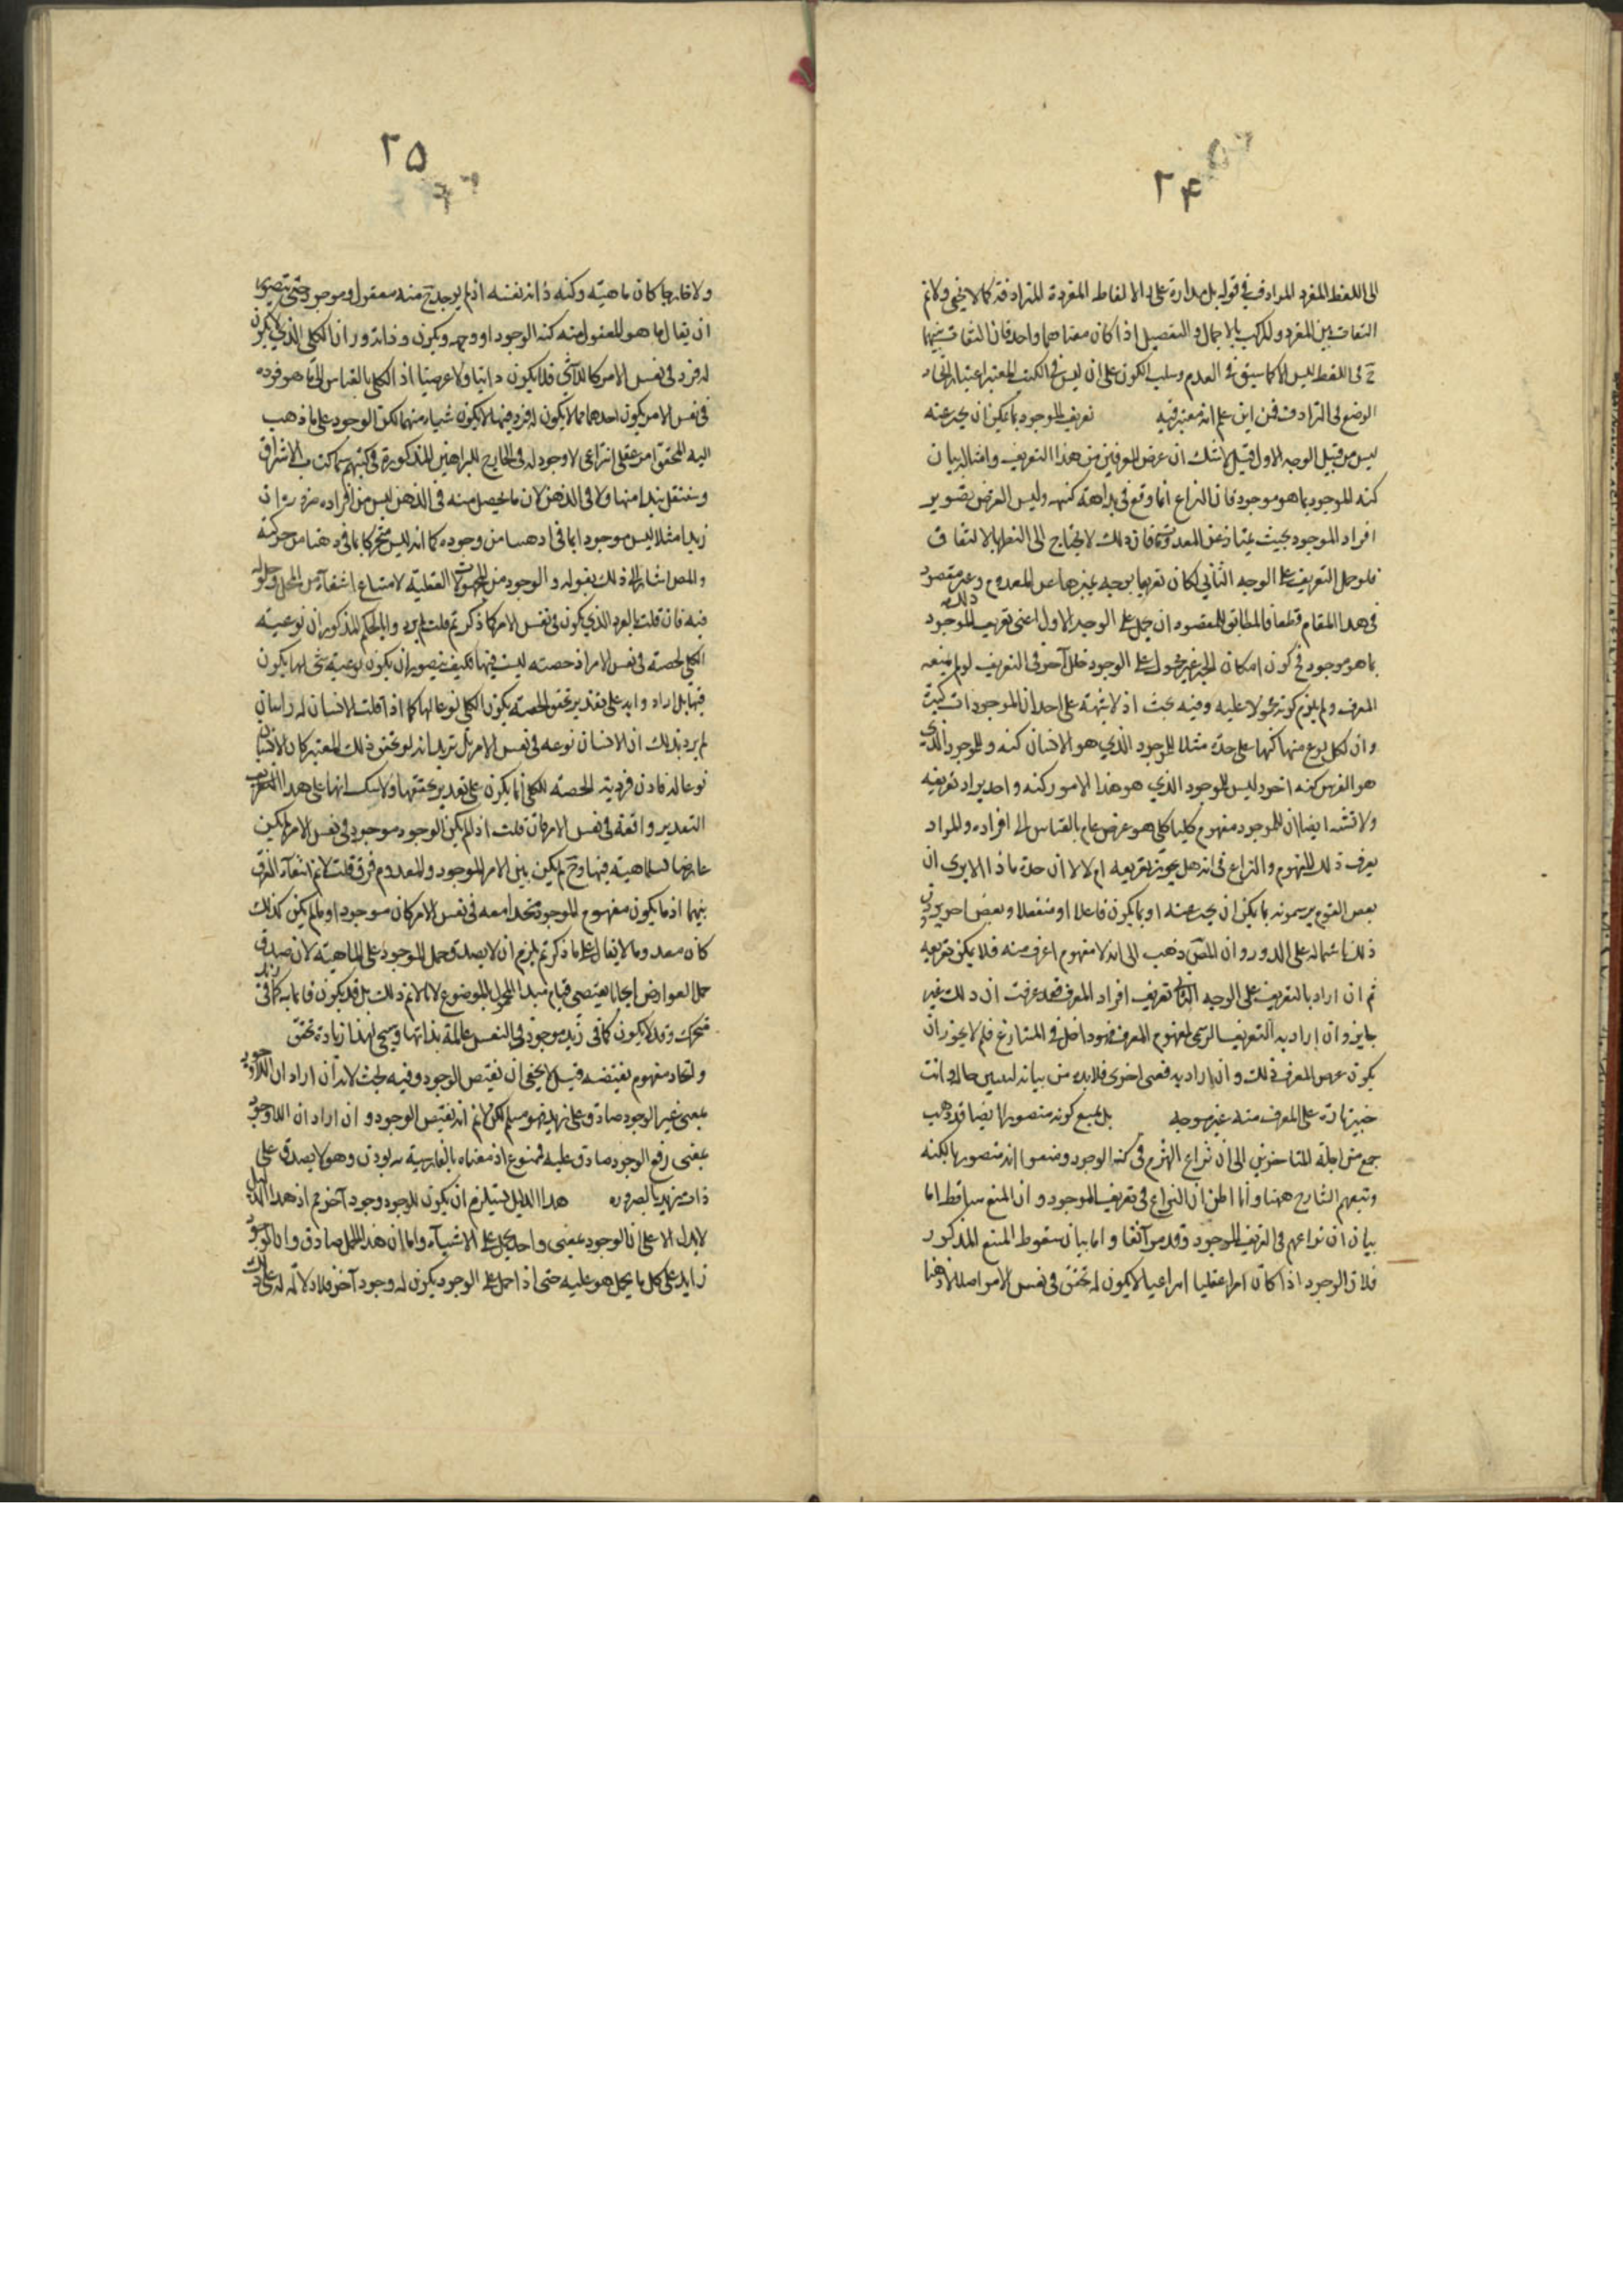 ۲۴
الى اللفظ المفرد المرادف في قوله بل مداره على الالفاظ المفردة المترادفة كما لا يخفى ولانم
التفاوت بين المفرد والمركب بالاجمال والتفصيل اذا كان معناهما واحد فان التفاوت بينهما
ح في اللفظ ليس الا كما سبق في العدم وسلب الكون على ان ليس في الكتب المعتبر اعتبار اتحاد
الوضع في الترادف فمن اين علم انه معتبر فيه تعريف الموجود بما يمكن ان يخبر عنه
ليس من قبيل الوجه الاول قيل لا شك ان غرض المعرفين من هذا التعريف وامثاله بيان
كنه الموجود بما هو موجود فان النزاع انما وقع في بداهة كنهه وليس الغرض تصوير
افراد الموجود بحيث يمتاز عن المعدوم فان ذلك لا يحتاج الى النظر بالاتفاق
فلو حمل التعريف على الوجه الثاني لكان تعريفا بوجه يميزها عن المعدوم وغير مقصود
في هذا المقام قطعا فالمطابق للمقصود ان يحمل على الوجه الاول اعني تعريف الموجود
بما هو موجود فح كون امكان الخبر غير محمول على الوجود خلل آخر في التعريف لو لم يمنعه
المعرف ولم يلزم كونه محمولا عليه وفيه بحث اذ لا شبهة على احد ان الموجودات كثيرة
وان لكل نوع منها كنها على حدة مثلا للموجود الذي هو الانسان كنه وللموجود الذي
هو الفرس كنه اخر وليس للموجود الذي هو هذا الامور كنه واحد يراد تعريفه
ولا نشبه ايضا ان للموجود مفهوم كليا كلي هو عرض عام بالقياس الى افراده والمراد
يعرف ذلك المفهوم والنزاع في انه هل يجوز تعريفه ام لا لا ان حده ماذا الا يرى ان
بعض القوم يرسمونه بما يمكن ان يخبر عنه او بما يكون فاعلا او منفعلا وبعض اخر يردون
ذلك باشتماله على الدور وان المص ذهب الى انه لا مفهوم اعرف منه فلا يمكن تعريفه
ثم ان اراد بالتعريف على الوجه الثاني تعريف افراد المعرف فقد عرفت ان ذلك غير
جايز وان اراد به التعريف الرسمي لمفهوم المعرف فهو داخل في المتنازع فلم لا يجوز ان
يكون غرض المعرف ذلك وان اراد به معنى اخرى فلا بد من بيانه ليتبين حاله وانت
خبير بانه على المعرف منه غير موجه بل يمنع كونه متصورا ايضا قد ذهب
جمع من اجلة المتاخرين الى ان نزاع القوم في كنه الوجود ومنعوا انه متصور بالكنه
وتبعهم الشارح ههنا وأنا اظن ان النزاع في تعريف الموجود وان المنع ساقط اما
بيان ان نزاعهم في تعريف الموجود فقد مر آنفا واما بيان سقوط المنع المذكور
فلان الوجود اذا كان امرا عقليا انتزاعيا لا يكون له تحقق في نفس الامر اصلا لا ذهنا
۲۵
ولا خارجا كان ماهيته وكنهه ذاته نفسه اذ لم يوجد ح منه معقول وموجود حتى يتصور
ان يقال ما هو المعقول منه كنه الوجود او وجهه ويكون وفانه وران الكلي الذي لا يكون
له فرد في نفس الامر كاللاشئ فلا يكون ذاتيا ولا عرضيا اذ الكلي بالقياس الى ما هو فرده
في نفس الامر يكون احدهما فما لا يكون له فرد فيها لا يكون شيا منهما لكن الوجود على ما ذهب
اليه المحققون امر عقلي انتزاعي لا وجود له في الخارج للبراهين المذكورة في كتبهم سيما كتاب الاشراق
وسننقل نبذا منها ولا في الذهن لان ما يحصل منه في الذهن ليس من افراده ضرورة ان
زيدا مثلا ليس موجودا بما في اذهاننا من وجوده كما انه ليس متحركا بما في ذهننا من حركته
والمص اشار الى ذلك بقوله والوجود من المحمولات العقلية لامتناع استغنائه عن المحل وحلوله
فيه فان قلت الفرد الذي يكون في نفس الامر كما ذكرتم قلت لم يريدوا بالحكم المذكور ان نوعية
الكلي لحصته في نفس الامر اذ حصته ليست فيها فكيف يتصور ان يكون نوعية شئ لها يكون
فيها بل ارادوا به على تقدير تحقق الحصة يكون الكلي نوعا لها كما اذا قلت الانسان له راسان
لم يرد بذلك ان الانسان نوعه في نفس الامر بل تريد انه لو تحقق ذلك المعتبر كان الانسان
نوعا له فاذن فردية الحصة للكلي انما يكون على تقدير تحققها ولا شك انها على هذا
التقدير واقعة في نفس الامر فان قلت اذا لم يكن الوجود موجود في نفس الامر لم يكن
عارضا للماهية فيها وح لم يكن بين الامر الموجود والمعدوم فرق قلت لانم انتفاء الفرق
بينهما اذ ما يكون مفهوم الموجود متحدا معه في نفس الامر كان موجودا وما لم يكن كذلك
كان معدوما لا يقال على ما ذكرتم يلزم ان لا يصدق حمل الموجود على الماهية لان صدق
حمل العوارض ايجابا يقتضي قيام مبدا المحمول بالموضوع لانا لانم ذلك بل قد يكون قائما به كما في زيد
متحرك وقد لا يكون كما في زيد موجود وفي النفس عالمة بذاتها وسيجي لهذا زيادة تحقق
واتحاد مفهوم نقيضه قيل لا يخفى ان نقيض الوجود وفيه بحث لانه ان اراد ان اللاوجود
بمعنى غير الوجود صادق على زيد فهو مسلم لكن لانم انه نقيض الوجود وان اراد ان اللاوجود
بمعنى رفع الوجود صادق عليه فممنوع اذ معناه بالفارسية نه بودن وهو لا يصدق على
ذات زيد بالضرورة هذا الدليل يستلزم ان يكون للوجود وجود آخر مم اذ هذا الدليل
لا يدل الا على ان الوجود بمعنى واحد يحمل على الاشياء واما ان هذا الحمل صادق وان الوجود
زايد على كل ما يحمل هو عليه حتى اذا حمل على الوجود يكون له وجود آخر فلا دلالة له على ذلك